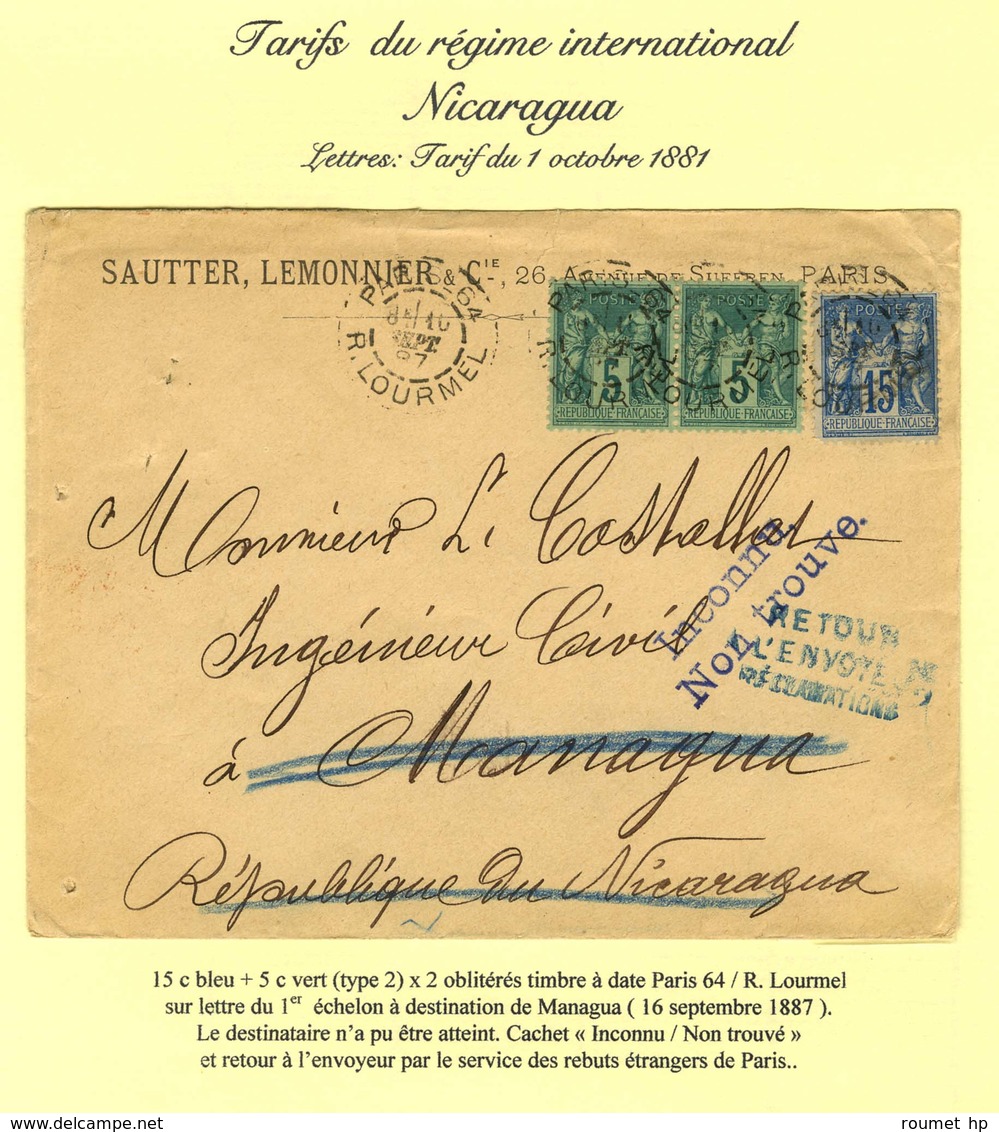 Tarifs du régime international
Nicaragua
Lettres: Tarif du 1 octobre 1881
SAUTTER, LEMONNIER & Cie, 26 AVENUE DE SUFFREN, PARIS
PARIS 64
SEPT
87
R. LOURMEL
POSTE
5
REPUBLIQUE FRANÇAISE
POSTE
5
REPUBLIQUE FRANÇAISE
POSTE
15
REPUBLIQUE FRANÇAISE
Monsieur L.
Inconnu.
Non trouve.
Ingénieur Civil
RETOUR
A L'ENVOYEUR
RÉCLAMATIONS
à Managua
République du Nicaragua
15 c bleu + 5 c vert (type 2) x 2 oblitérés timbre à date Paris 64 / R. Lourmel
sur lettre du 1er échelon à destination de Managua ( 16 septembre 1887 ).
Le destinataire n'a pu être atteint. Cachet « Inconnu / Non trouvé »
et retour à l'envoyeur par le service des rebuts étrangers de Paris..
roumet hp